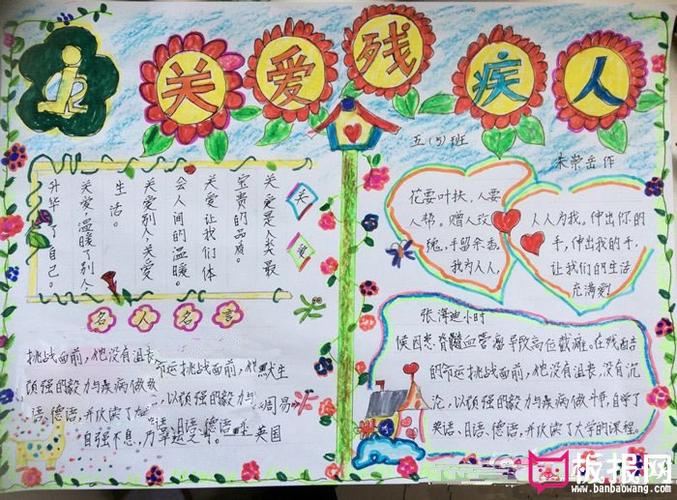 关爱残疾人
五（5）班
朱荣岳作
关爱是人类最
宝贵的品质。
关爱让我们体
会人间的温暖。
关爱别人，关爱
生活。
关爱温暖了别人，
升华了自己。
关
爱
名人名言
挑战面前，他没有沮丧
命运挑战面前，他
默生
顽强的毅力与疾病做
，以顽强的毅力与
周易
语、德语，并
语、德语，
自强不息，
英国
花要叶扶，人要
人帮。赠人玫
瑰，手留余香。
我为人人，
人人为我。伸出你的
手，伸出我的手，
让我们的生活
充满爱！
张海迪小时
候因患脊髓血管瘤导致高位截瘫。在残酷
的命运挑战面前，他没有沮丧，没有沉
沦，以顽强的毅力与疾病做斗争，自学了
英语、日语、德语，并攻读了大学的课程。
板报网
www.banbaowang.com